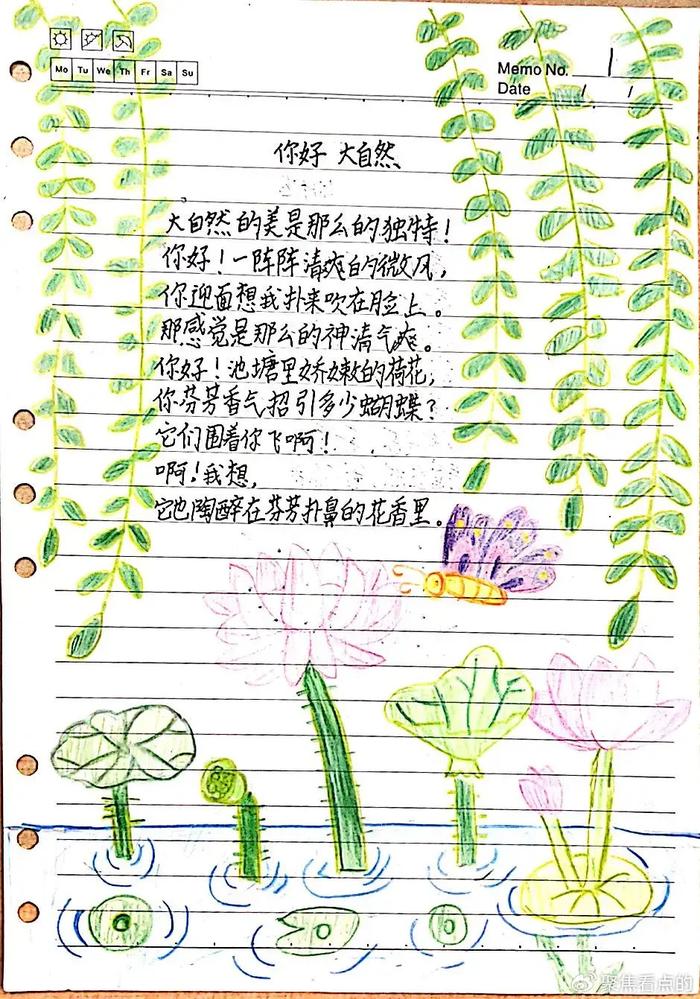 Mo Tu We Th Fr Sa Su
Memo No. 1
Date / /
你好 大自然
大自然的美是那么的独特！
你好！一阵阵清爽的微风，
你迎面想我扑来吹在脸上。
那感觉是那么的神清气爽。
你好！池塘里娇嫩的荷花，
你芬芳香气招引多少蝴蝶？
它们围着你飞啊！
啊！我想，
它也陶醉在芬芳扑鼻的花香里。
@聚焦看点的